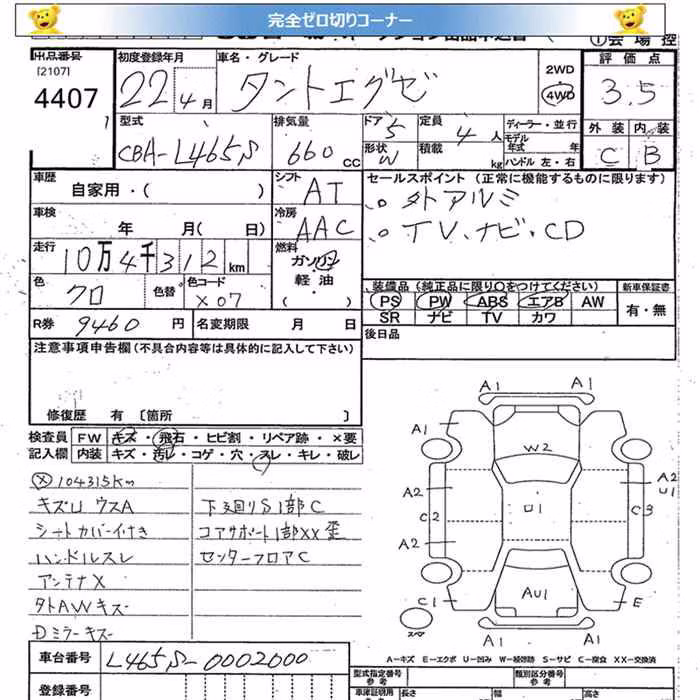 完全ゼロ切りコーナー
出品番号
[2107]
4407
初度登録年月
22年4月
車名・グレード
タントエグゼ
2WD
4WD
①会場控
評価点
3.5
外装 内装
C B
型式
CBA-L465S
排気量
660cc
ドア 5
形状 W
定員 4人
積載 kg
ディーラー・並行
モデル年式 年
ハンドル 左・右
車歴
自家用・( )
シフト
AT
セールスポイント (正常に機能するものに限ります)
。外アルミ
。TV.ナビ.CD
車検
年 月( 日)
冷房
AAC
走行
10万4千312km
燃料
ガソリン・軽油
色
クロ
色替
色コード
X07
装備品 (純正品に限り○をつけてください)
PS PW ABS エアB AW
SR ナビ TV カワ
新車保証書
有・無
R券 9460円
名変期限 月 日
後日品
注意事項申告欄(不具合内容等は具体的に記入して下さい)
修復歴 有 [箇所 ]
検査員記入欄
FW キズ・飛石・ヒビ割・リペア跡・×要
内装 キズ・汚レ・コゲ・穴・スレ・キレ・破レ
ⓧ 104315Km
キズU ウスA
シートカバー付き
ハンドルスレ
アンテナX
タトAWキズ
Dミラーキズ
下廻りS1部C
コアサポート1部XX歪
センターフロアC
A1 A1
A1
W2
A2
A2
U1
C2
U1
C3
A2
C1
AU1
E
スペア
A1 A1
A-キズ E-エクボ U-凹み W-補修跡 S-サビ C-腐食 XX-交換
車台番号
L465S-0002000
登録番号
型式指定番号
参考
類別区分番号
参考
車庫証明用
長さ
幅
高さ